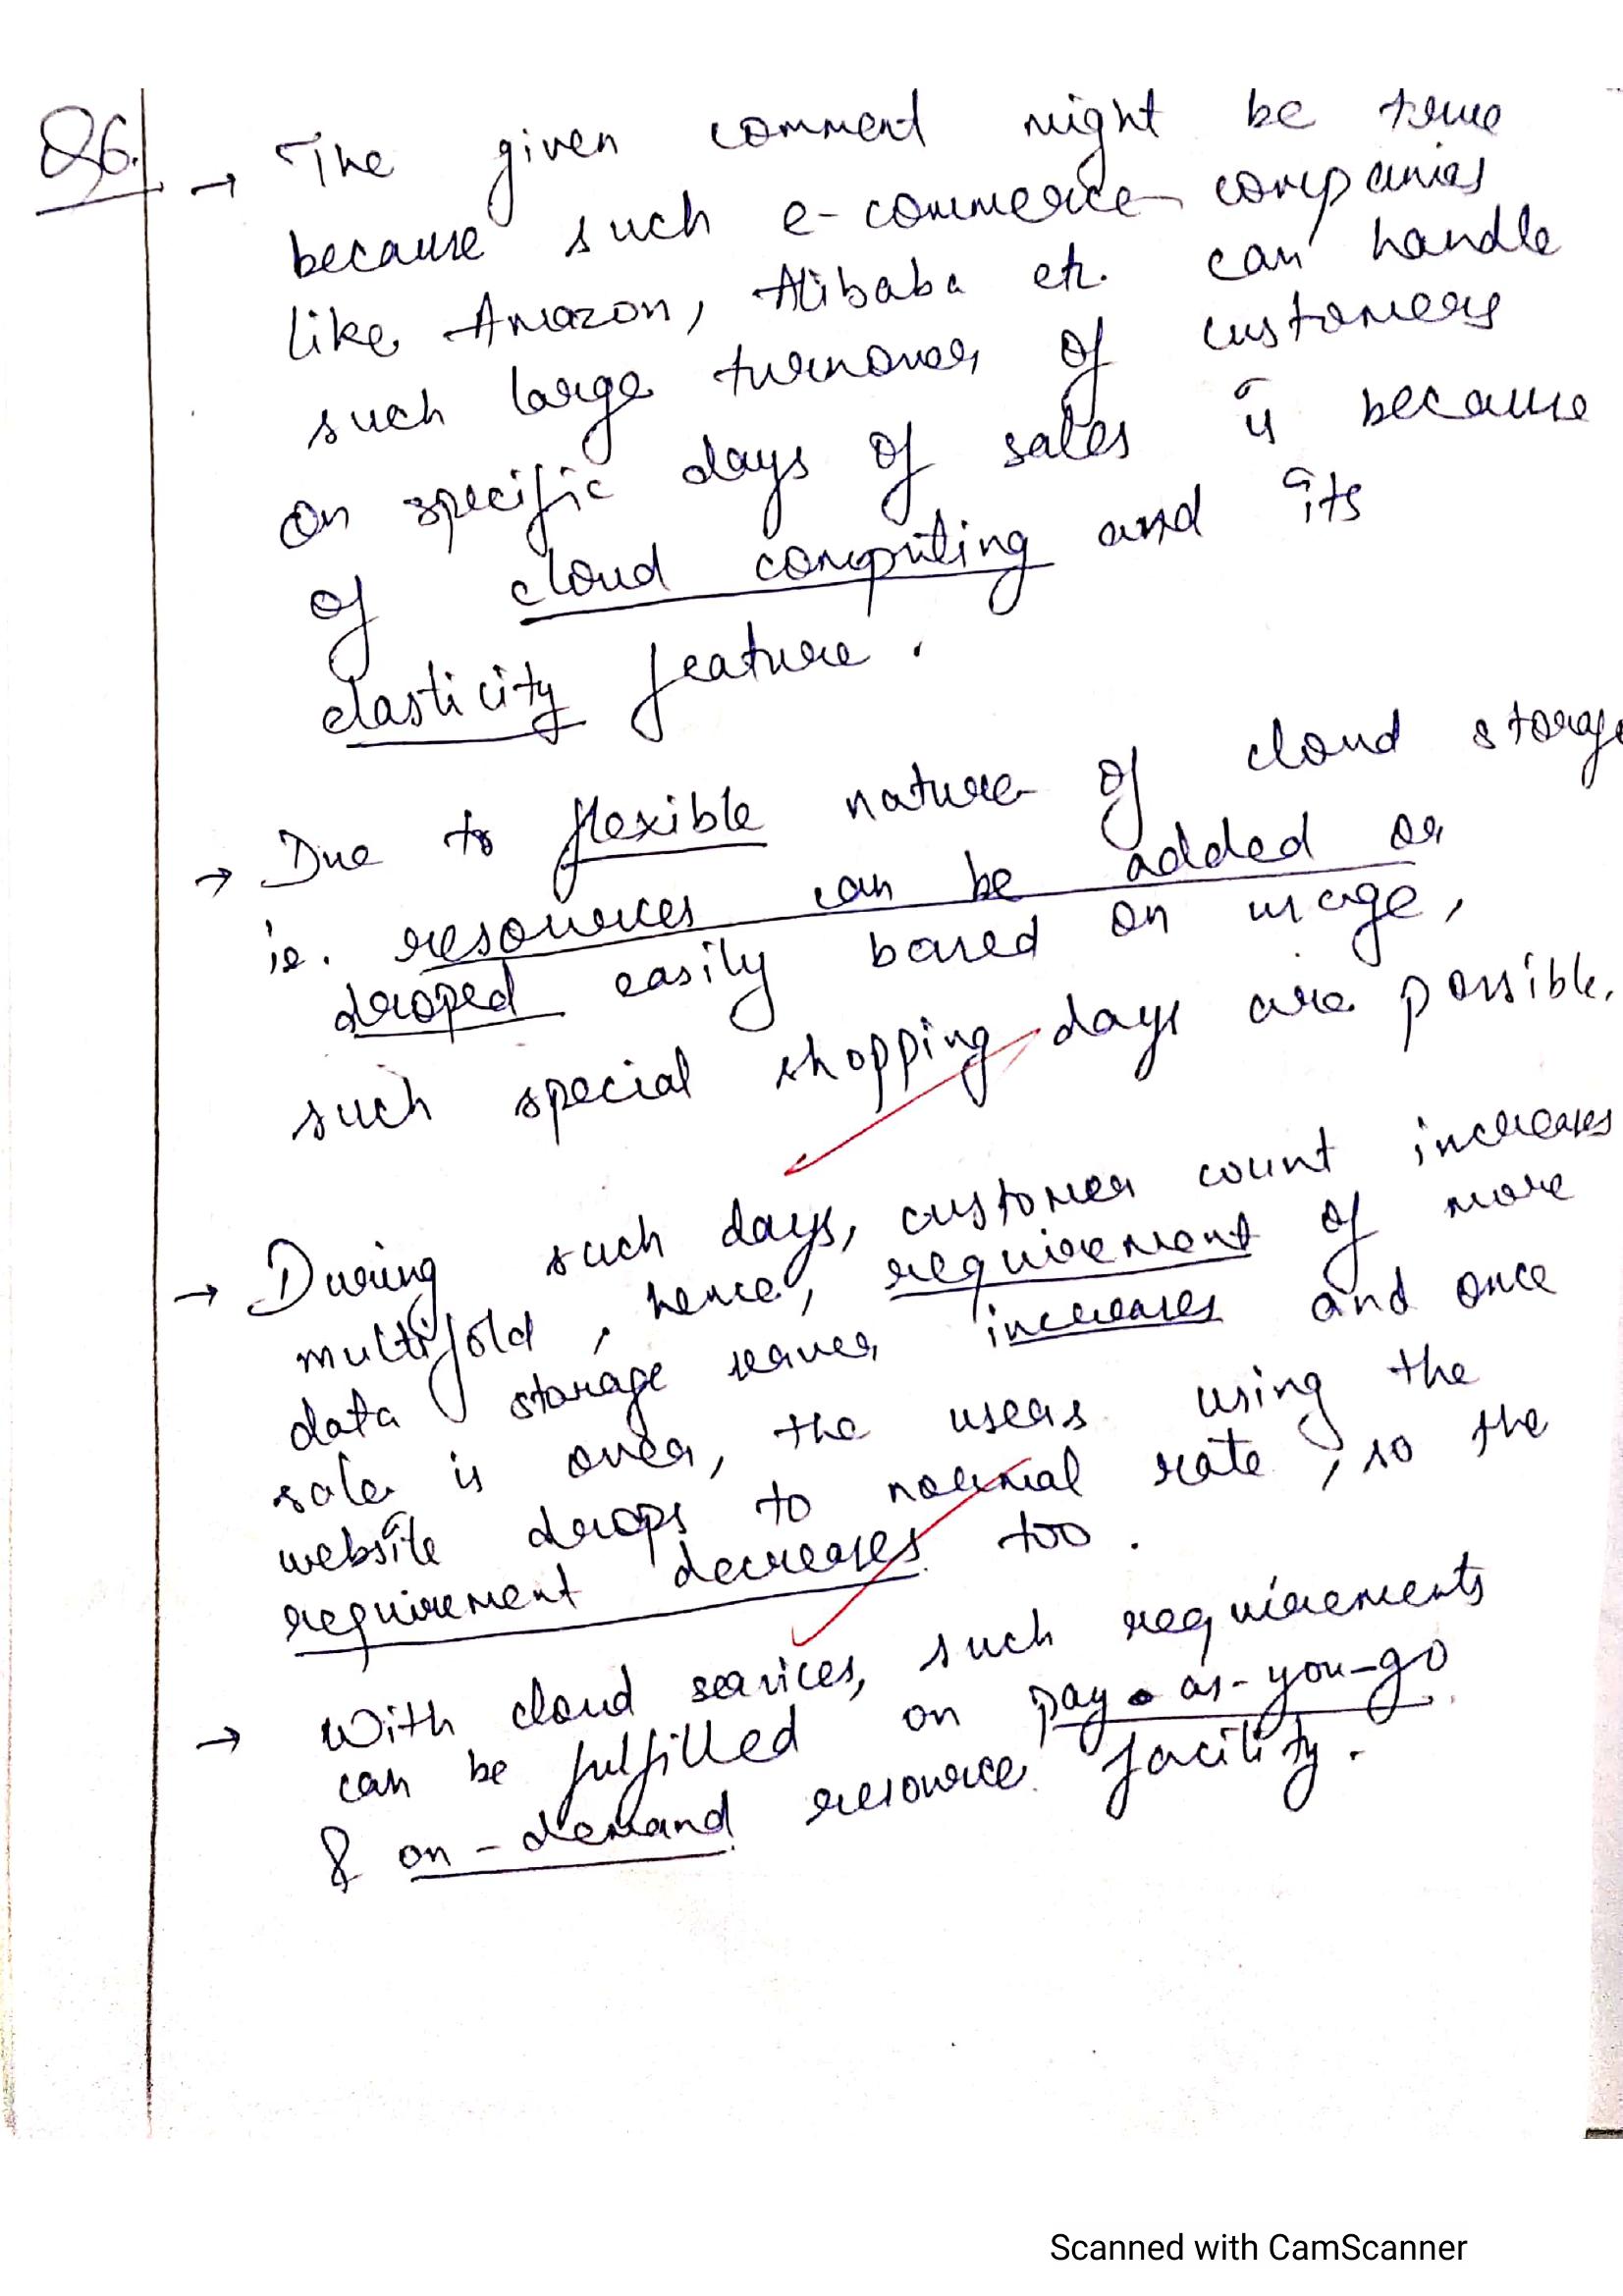 Q6.
→ The given comment might be true
because such e-commerce companies
like Amazon, Alibaba etc. can handle
such large turnover of customers
on specific days of sales is because
of cloud computing and its
elasticity feature.
→ Due to flexible nature of cloud storage
ie. resources can be added or
droped easily based on usage,
such special shopping days are possible.
→ During such days, customer count increases
multifold, hence, requirement of more
data storage server increases and once
sale is over, the users using the
website drops to normal rate, so the
requirement decreases too.
→ With cloud services, such requirements
can be fulfilled on pay-as-you-go
& on-demand resource facility.
Scanned with CamScanner